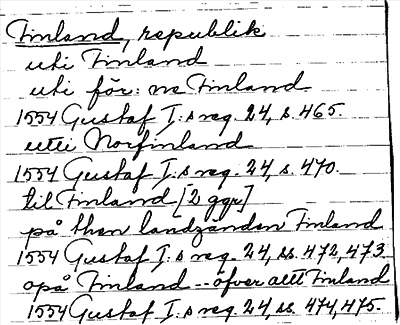 Finland, republik
uti Finland
uti för: ne Finland
1554 Gustaf I:s reg. 24, s. 465.
utii Norfinland
1554 Gustaf I:s reg. 24, s. 470.
til Finland [2 ggr]
på then landzänden Finland
1554 Gustaf I:s reg. 24, ss. 472, 473
opå Finland -- öfver altt Finland
1554 Gustaf I:s reg. 24, ss. 474, 475.